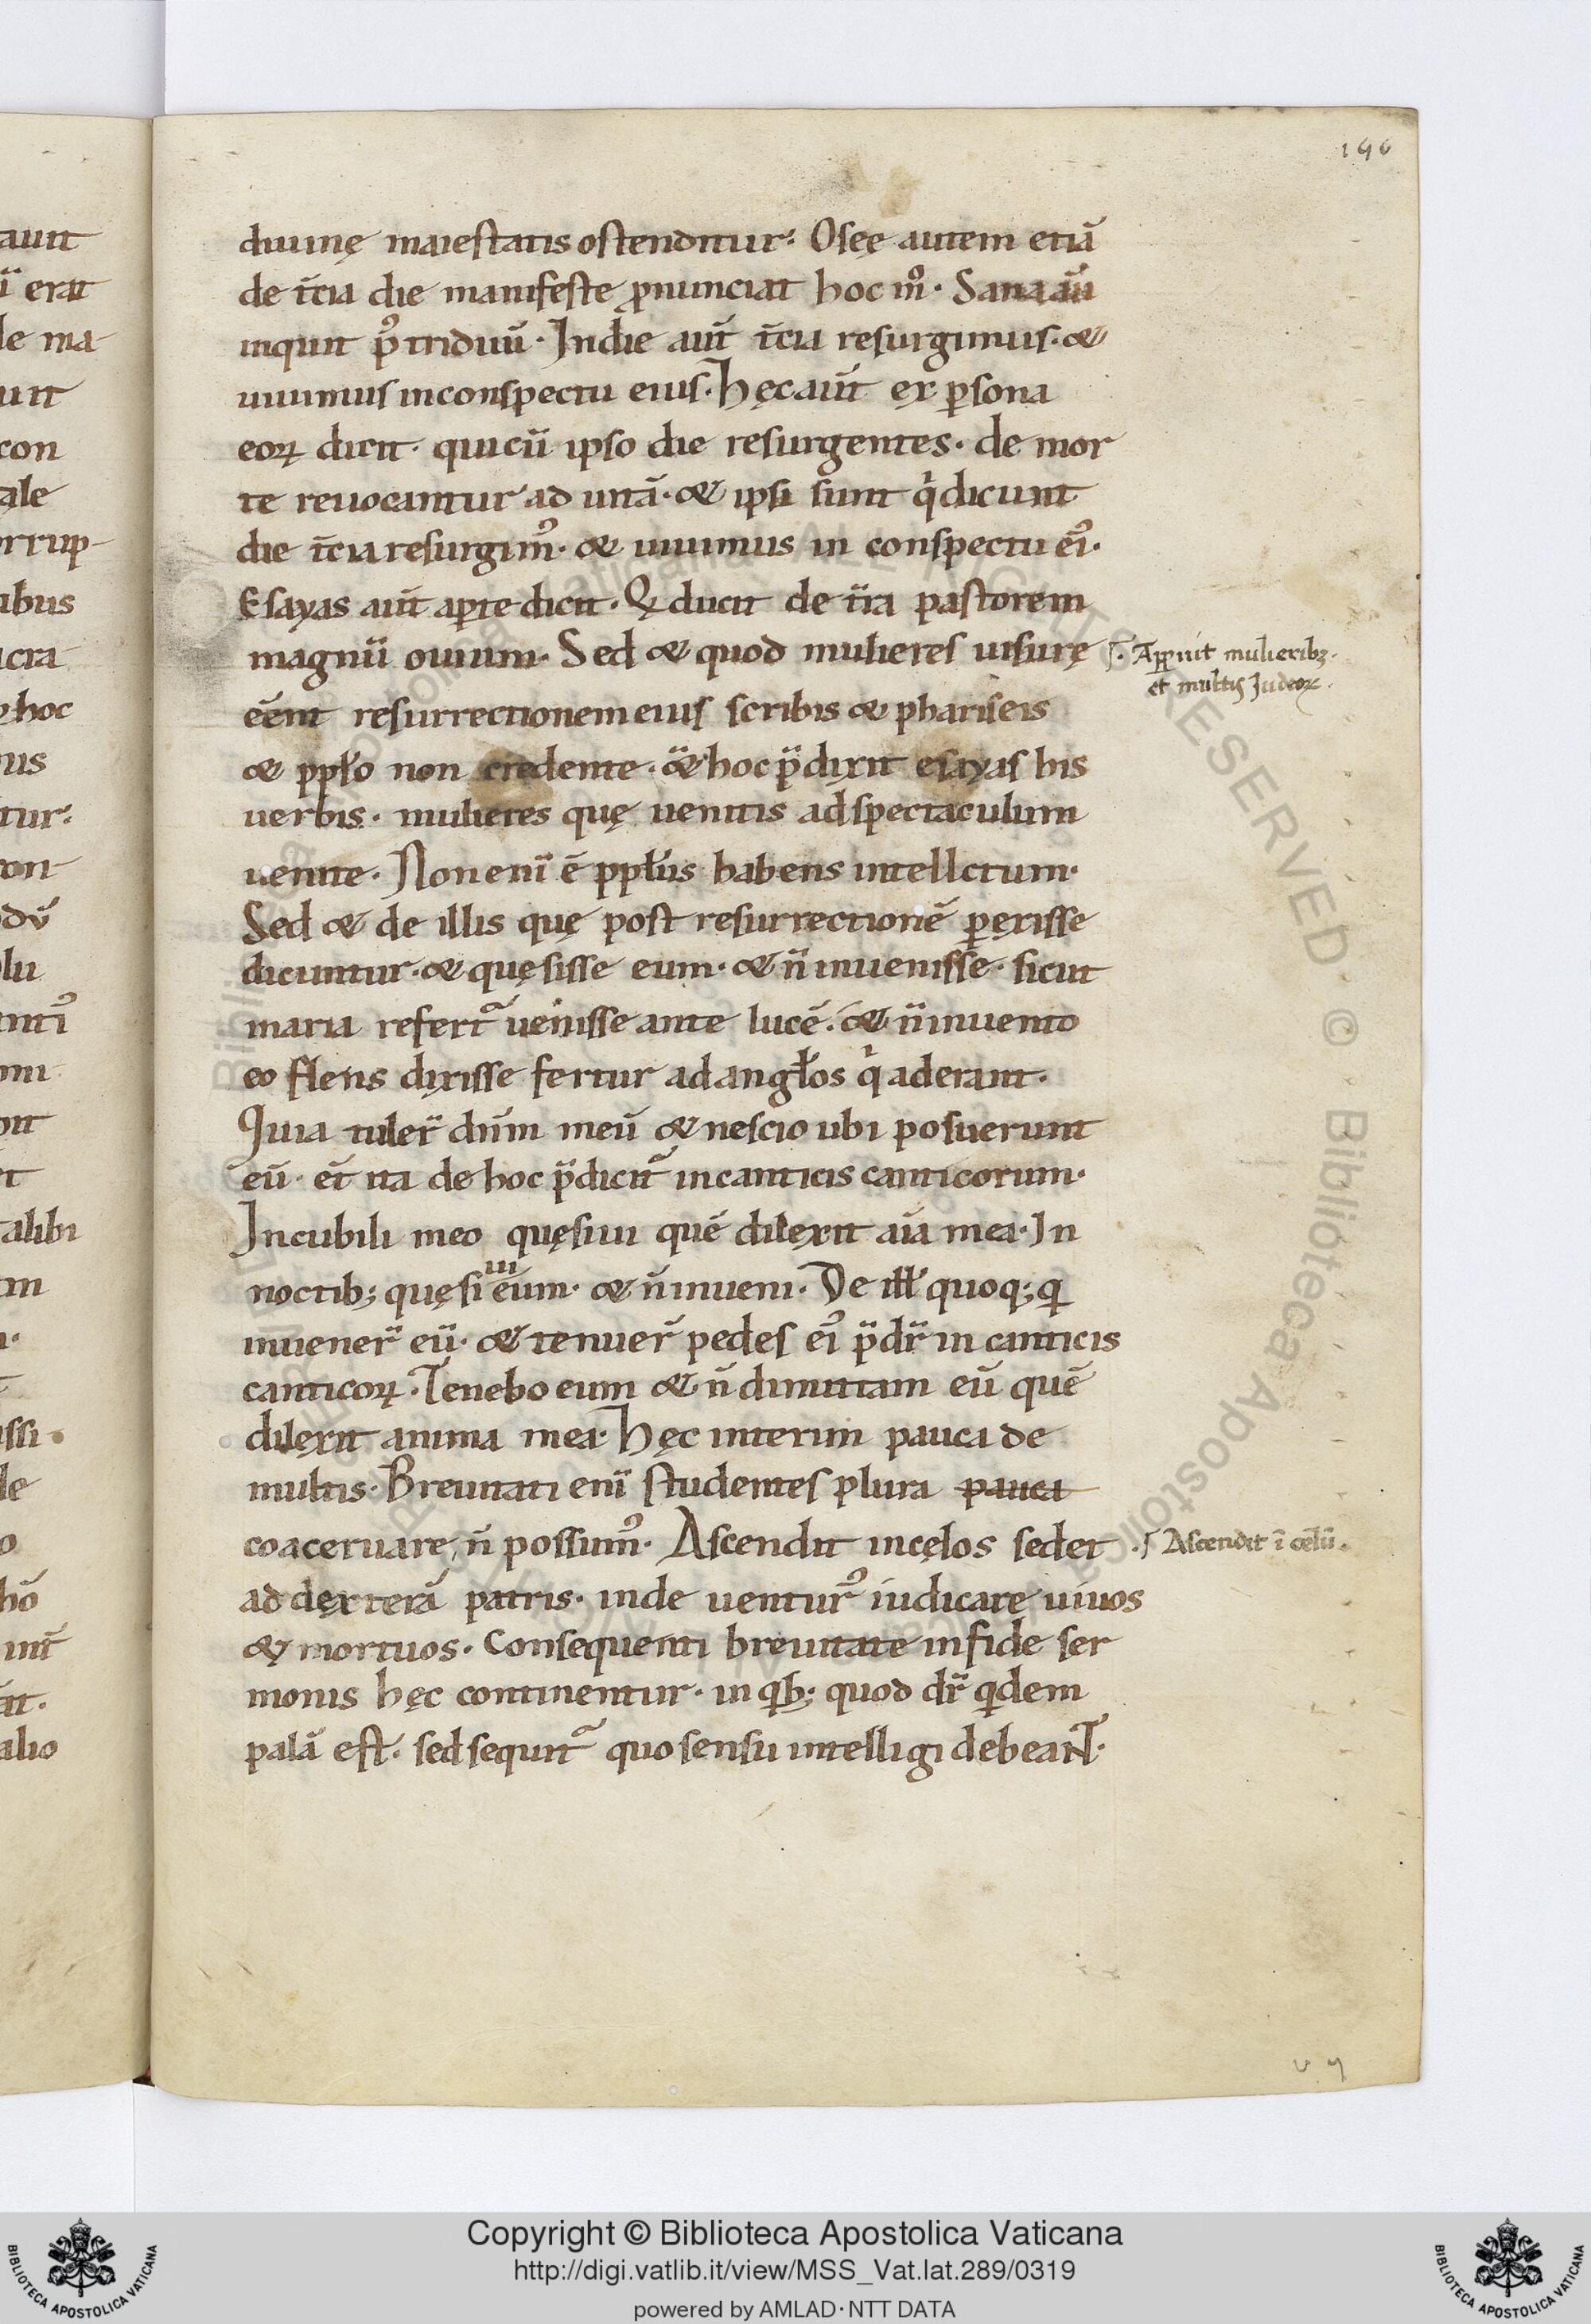 196
diuinę maiestatis ostenditur: Oseę autem etiā
de t̄cia die manifeste ꝓnunciat hoc m̊. Sana aū
inquit pꝰ triduū. In die aut̄ t̄cia resurgimus. &
uiuimus in conspectu eius. hęc aut̄ ex ꝑsona
eoꝝ dicit. qui cū ipso die resurgentes. de mor
te reuocantur ad uitā. & ipsi sunt qͥ dicunt
die t̄cia resurgimꝰ. & uiuimus in conspectu eiꝰ.
Esayas aut̄ aꝑte dicit. Qͥ ducit de t̄ra pastorem
magnū ouium. Sed & quod mulieres uisurę
ſ. Apꝑuit mulieribꝫ.
et multis Iudeoꝝ.
eēnt resurrectionem eius scribis & phariseis
& ppło non credente. & hoc p̄dixit esayas his
uerbis. mulieres quę uenitis ad spectaculum
uenite. Non enī ē ppłus habens intellctum.
Sed & de illis quę post resurrectionē ꝑexisse
dicuntur. & quęsisse eum. & n̄ inuenisse. sicut
maria refert᷑ uenisse ante lucē. & n̄ inuento
eo flens dixisse fertur ad angłos qͥ aderant.
Quia tuler̄ dūm meū & nescio ubi posuerunt
eū. et̄ ita de hoc p̄dicit᷑ in canticis canticorum.
In cubili meo quęsiui quē dilexit aīa mea. In
noctibꝫ quęsiui eum. & n̄ inueni. De ill̄ quoqꝫ qͥ
inuener̄ eū. & tenuer̄ pedes eiꝰ p̄dr̄ in canticis
canticoꝝ. Tenebo eum & n̄ dimittam eū quē
dilexit anima mea. hęc interim pauca de
multis. Breuitati enī studentes plura pauca
coaceruare, n̄ possimꝰ. Ascendit in cęlos sedet
.ſ Ascendit ī celū.
ad dexterā patris. inde uenturꝰ iudicare uiuos
& mortuos. Consequenti breuitate in fide ser
monis hęc continentur. in qͥbꝫ quod dr̄ qͥdem
palā est. sed sequit᷑ quo sensu intelligi debeant.
Copyright © Biblioteca Apostolica Vaticana
http://digi.vatlib.it/view/MSS_Vat.lat.289/0319
powered by AMLAD·NTT DATA
BIBLIOTECA APOSTOLICA VATICANA
BIBLIOTECA APOSTOLICA VATICANA